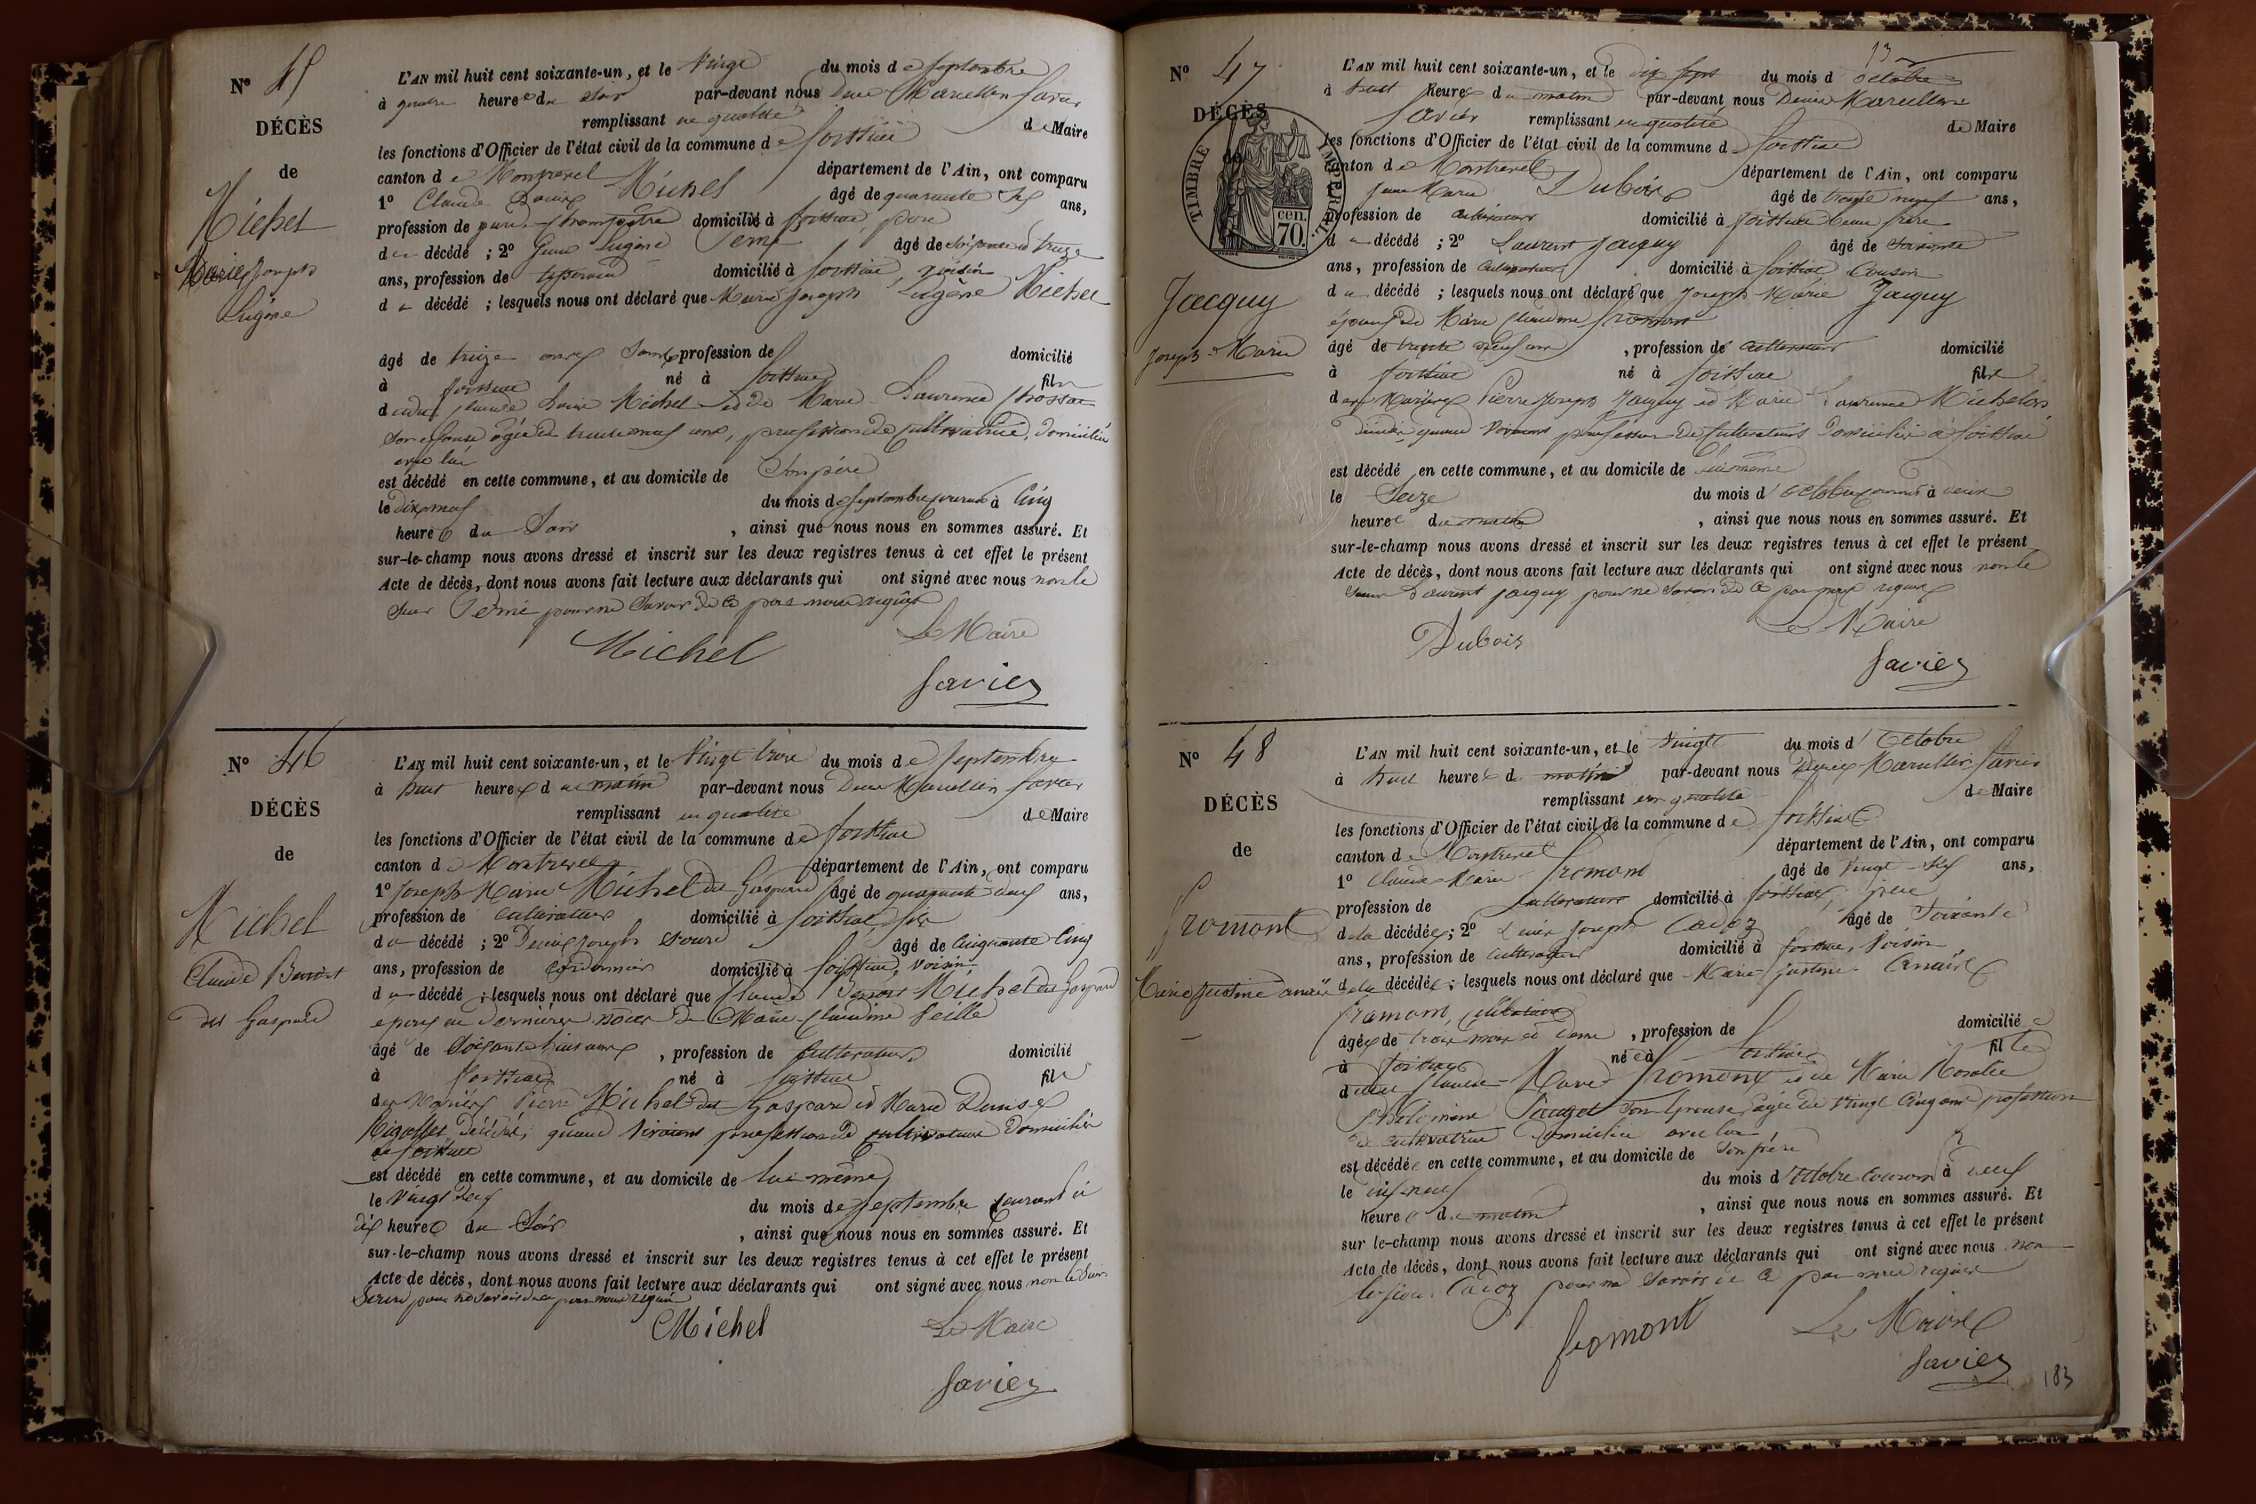 N° 45
DÉCÈS
de
Michel
Marie Joseph
Eugène
L'AN mil huit cent soixante-un, et le vingt du mois de septembre
à quatre heures du soir par-devant nous Denis Marcellin Favier
remplissant en qualité de Maire
les fonctions d'Officier de l'état civil de la commune de Foissiat
canton de Montrevel département de l'Ain, ont comparu
1° Claude Louis Michel âgé de quarante six ans,
profession de garde champêtre domicilié à Foissiat, père
du décédé ; 2° Eugène âgé de soixante et treize
ans, profession de domicilié à Foissiat, voisin
du décédé ; lesquels nous ont déclaré que Marie Joseph Eugène Michel
âgé de treize ans profession de domicilié
à Foissiat né à Foissiat fils
dudit Claude Louis Michel et de Marie Laurence
son épouse âgée de trente neuf ans, profession de cultivatrice, domiciliée
avec lui
est décédé en cette commune, et au domicile de son père
le dix neuf du mois de septembre courant à cinq
heures du soir, ainsi que nous nous en sommes assuré. Et
sur-le-champ nous avons dressé et inscrit sur les deux registres tenus à cet effet le présent
Acte de décès, dont nous avons fait lecture aux déclarants qui ont signé avec nous non le
sieur pour ne savoir de ce par nous requis
Michel Le Maire
Favier
N° 46
DÉCÈS
de
Michel
Claude Benoit
dit Gaspard
L'AN mil huit cent soixante-un, et le vingt trois du mois de septembre
à huit heures du matin par-devant nous Denis Marcellin Favier
remplissant en qualité de Maire
les fonctions d'Officier de l'état civil de la commune de Foissiat
canton de Montrevel département de l'Ain, ont comparu
1° Joseph Marie Michel dit Gaspard âgé de quarante deux ans,
profession de cultivateur domicilié à Foissiat, fils
du décédé ; 2° Denis Joseph âgé de cinquante cinq
ans, profession de cordonnier domicilié à Foissiat, voisin
du décédé ; lesquels nous ont déclaré que Claude Benoit Michel dit Gaspard
époux en dernières noces de Marie Claudine
âgé de soixante huit ans, profession de cultivateur domicilié
à Foissiat né à Foissiat fils
des mariés Pierre Michel dit Gaspard et Marie Denise
décédés, quand vivaient profession de cultivateurs domiciliés
à Foissiat
est décédé en cette commune, et au domicile de lui même
le vingt deux du mois de septembre courant à
dix heures du soir, ainsi que nous nous en sommes assuré. Et
sur-le-champ nous avons dressé et inscrit sur les deux registres tenus à cet effet le présent
Acte de décès, dont nous avons fait lecture aux déclarants qui ont signé avec nous non le sieur
pour ne savoir de ce par nous requis
Michel Le Maire
Favier
13
N° 47
DÉCÈS
de
TIMBRE IMPERIAL.
cen.
70.
Jacquy
Joseph Marie
L'AN mil huit cent soixante-un, et le dix sept du mois d'octobre
à huit heures du matin par-devant nous Denis Marcellin
Favier remplissant en qualité de Maire
les fonctions d'Officier de l'état civil de la commune de Foissiat
canton de Montrevel département de l'Ain, ont comparu
Marie Dubois âgé de trente neuf ans,
profession de cultivateur domicilié à Foissiat beau frère
du décédé ; 2° Laurent Jacquy âgé de soixante
ans, profession de cultivateur domicilié à Foissiat, cousin
du décédé ; lesquels nous ont déclaré que Joseph Marie Jacquy
époux de Marie Claudine Fromont
âgé de trente ans, profession de cultivateur domicilié
à Foissiat né à Foissiat fils
des mariés Pierre Joseph Jacquy et Marie Laurence Michelon
décédés quand vivaient profession de cultivateurs domiciliés à Foissiat
est décédé en cette commune, et au domicile de lui même
le seize du mois d'octobre courant à
heures du matin, ainsi que nous nous en sommes assuré. Et
sur-le-champ nous avons dressé et inscrit sur les deux registres tenus à cet effet le présent
Acte de décès, dont nous avons fait lecture aux déclarants qui ont signé avec nous non le
sieur Laurent Jacquy pour ne savoir de ce par nous requis
Dubois Le Maire
Favier
N° 48
DÉCÈS
de
Fromont
Marie Justine
L'AN mil huit cent soixante-un, et le vingt du mois d'octobre
à huit heures du matin par-devant nous Denis Marcellin Favier
remplissant en qualité de Maire
les fonctions d'Officier de l'état civil de la commune de Foissiat
canton de Montrevel département de l'Ain, ont comparu
1° Claude Marie Fromont âgé de vingt six ans,
profession de cultivateur domicilié à Foissiat, père
de la décédée ; 2° Joseph Cadoz âgé de soixante
ans, profession de cultivateur domicilié à Foissiat, voisin
de la décédée ; lesquels nous ont déclaré que Marie Justine
Fromont, célibataire
âgée de trois mois et demi, profession de domiciliée
à Foissiat née à Foissiat fille
dudit Claude Marie Fromont et de Marie Rosalie
Philomène son épouse, âgée de vingt cinq ans profession
de cultivatrice domiciliée avec lui
est décédée en cette commune, et au domicile de son père
le dix neuf du mois d'octobre courant à neuf
heures du matin, ainsi que nous nous en sommes assuré. Et
sur le-champ nous avons dressé et inscrit sur les deux registres tenus à cet effet le présent
Acte de décès, dont nous avons fait lecture aux déclarants qui ont signé avec nous non
le sieur Cadoz pour ne savoir de ce par nous requis
Fromont Le Maire
Favier
183